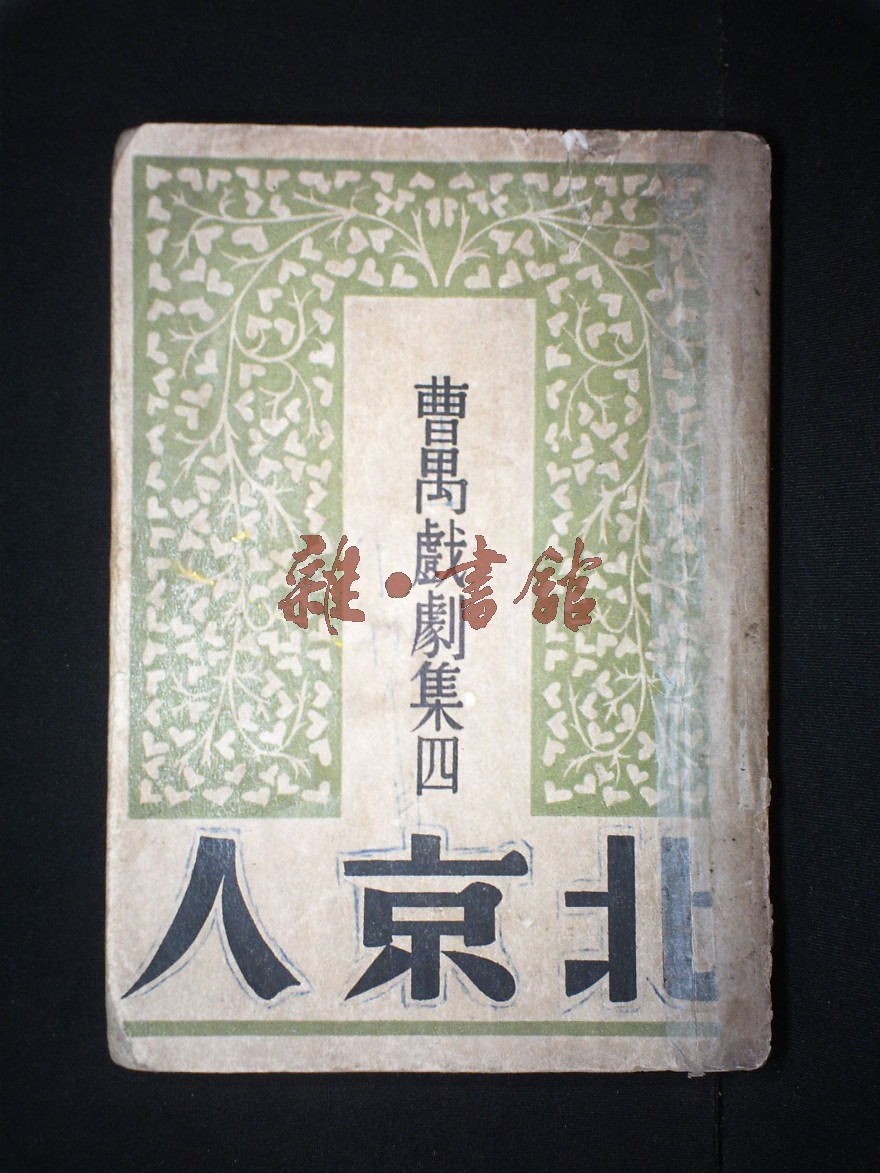 曹禺戲劇集四
雜·書館
北京人